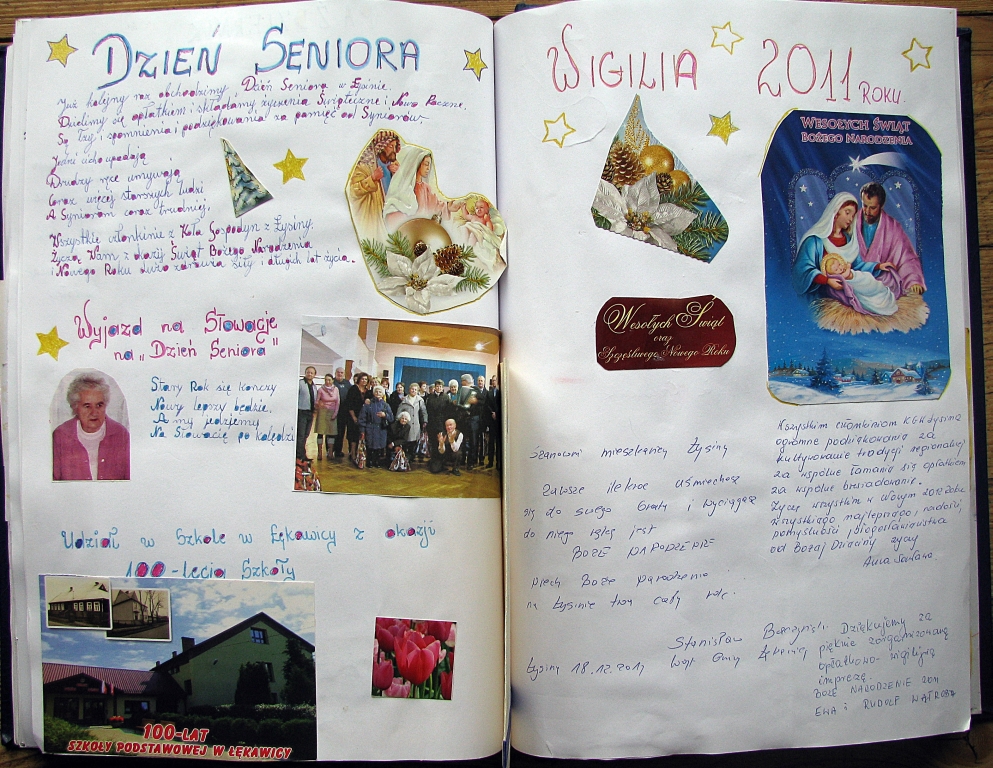 DZIEŃ SENIORA
Już kolejny raz obchodzimy, Dzień Seniora w Łysinie.
Dzielimy się opłatkiem i składamy, życzenia Świąteczne i, Nowo Roczne.
Są łzy i, wspomnienia i podziękowania! za pamięć od Seniorów.
Jedni cicho upadają
Drudzy ręce umywają
Coraz więcej starszych ludzi
A Seniorom coraz trudniej.
Wszystkie członkinie z Koła Gospodyń z Łysiny.
Życzą Wam z okazji Świąt Bożego Narodzenia
i Nowego Roku dużo zdrowia siły i długich lat życia.
Wyjazd na Słowację
na „Dzień Seniora"
Stary Rok się kończy
Nowy lepszy będzie.
A my jedziemy
Na Słowację po kolędzi
Udział w Szkole w Łękawicy z okazji
100-lecia Szkoły
100-LAT
SZKOŁY PODSTAWOWEJ W ŁĘKAWICY
WIGILIA 2011 ROKU.
WESOŁYCH ŚWIĄT
BOŻEGO NARODZENIA
Wesołych Świąt
oraz
Szczęśliwego Nowego Roku
Szanowni mieszkańcy Łysiny
Zawsze ilekroć uśmiechasz
się do swego brata i wyciągasz
do niego rękę jest
BOŻE NARODZENIE
Niech Boże Narodzenie
na Łysinie trwa cały rok.
Stanisław
Łysina 18.12.2011 Wójt Gminy Łękawica
Wszystkim członkiniom KGW Łysina
ogromne podziękowania za
kultywowanie tradycji regionalnej
za wspólne łamanie się opłatkiem
za wspólne biesiadowanie.
Życzę wszystkim w Nowym 2012 Roku
wszystkiego najlepszego, radości,
pomyślności i błogosławieństwa
od Bożej Dzieciny życzy
Anna
Dziękujemy za
pięknie zorganizowaną
opłatkowo-wigilijną
imprezę.
BOŻE NARODZENIE 2011
EWA i RUDOLF WĄTROBA